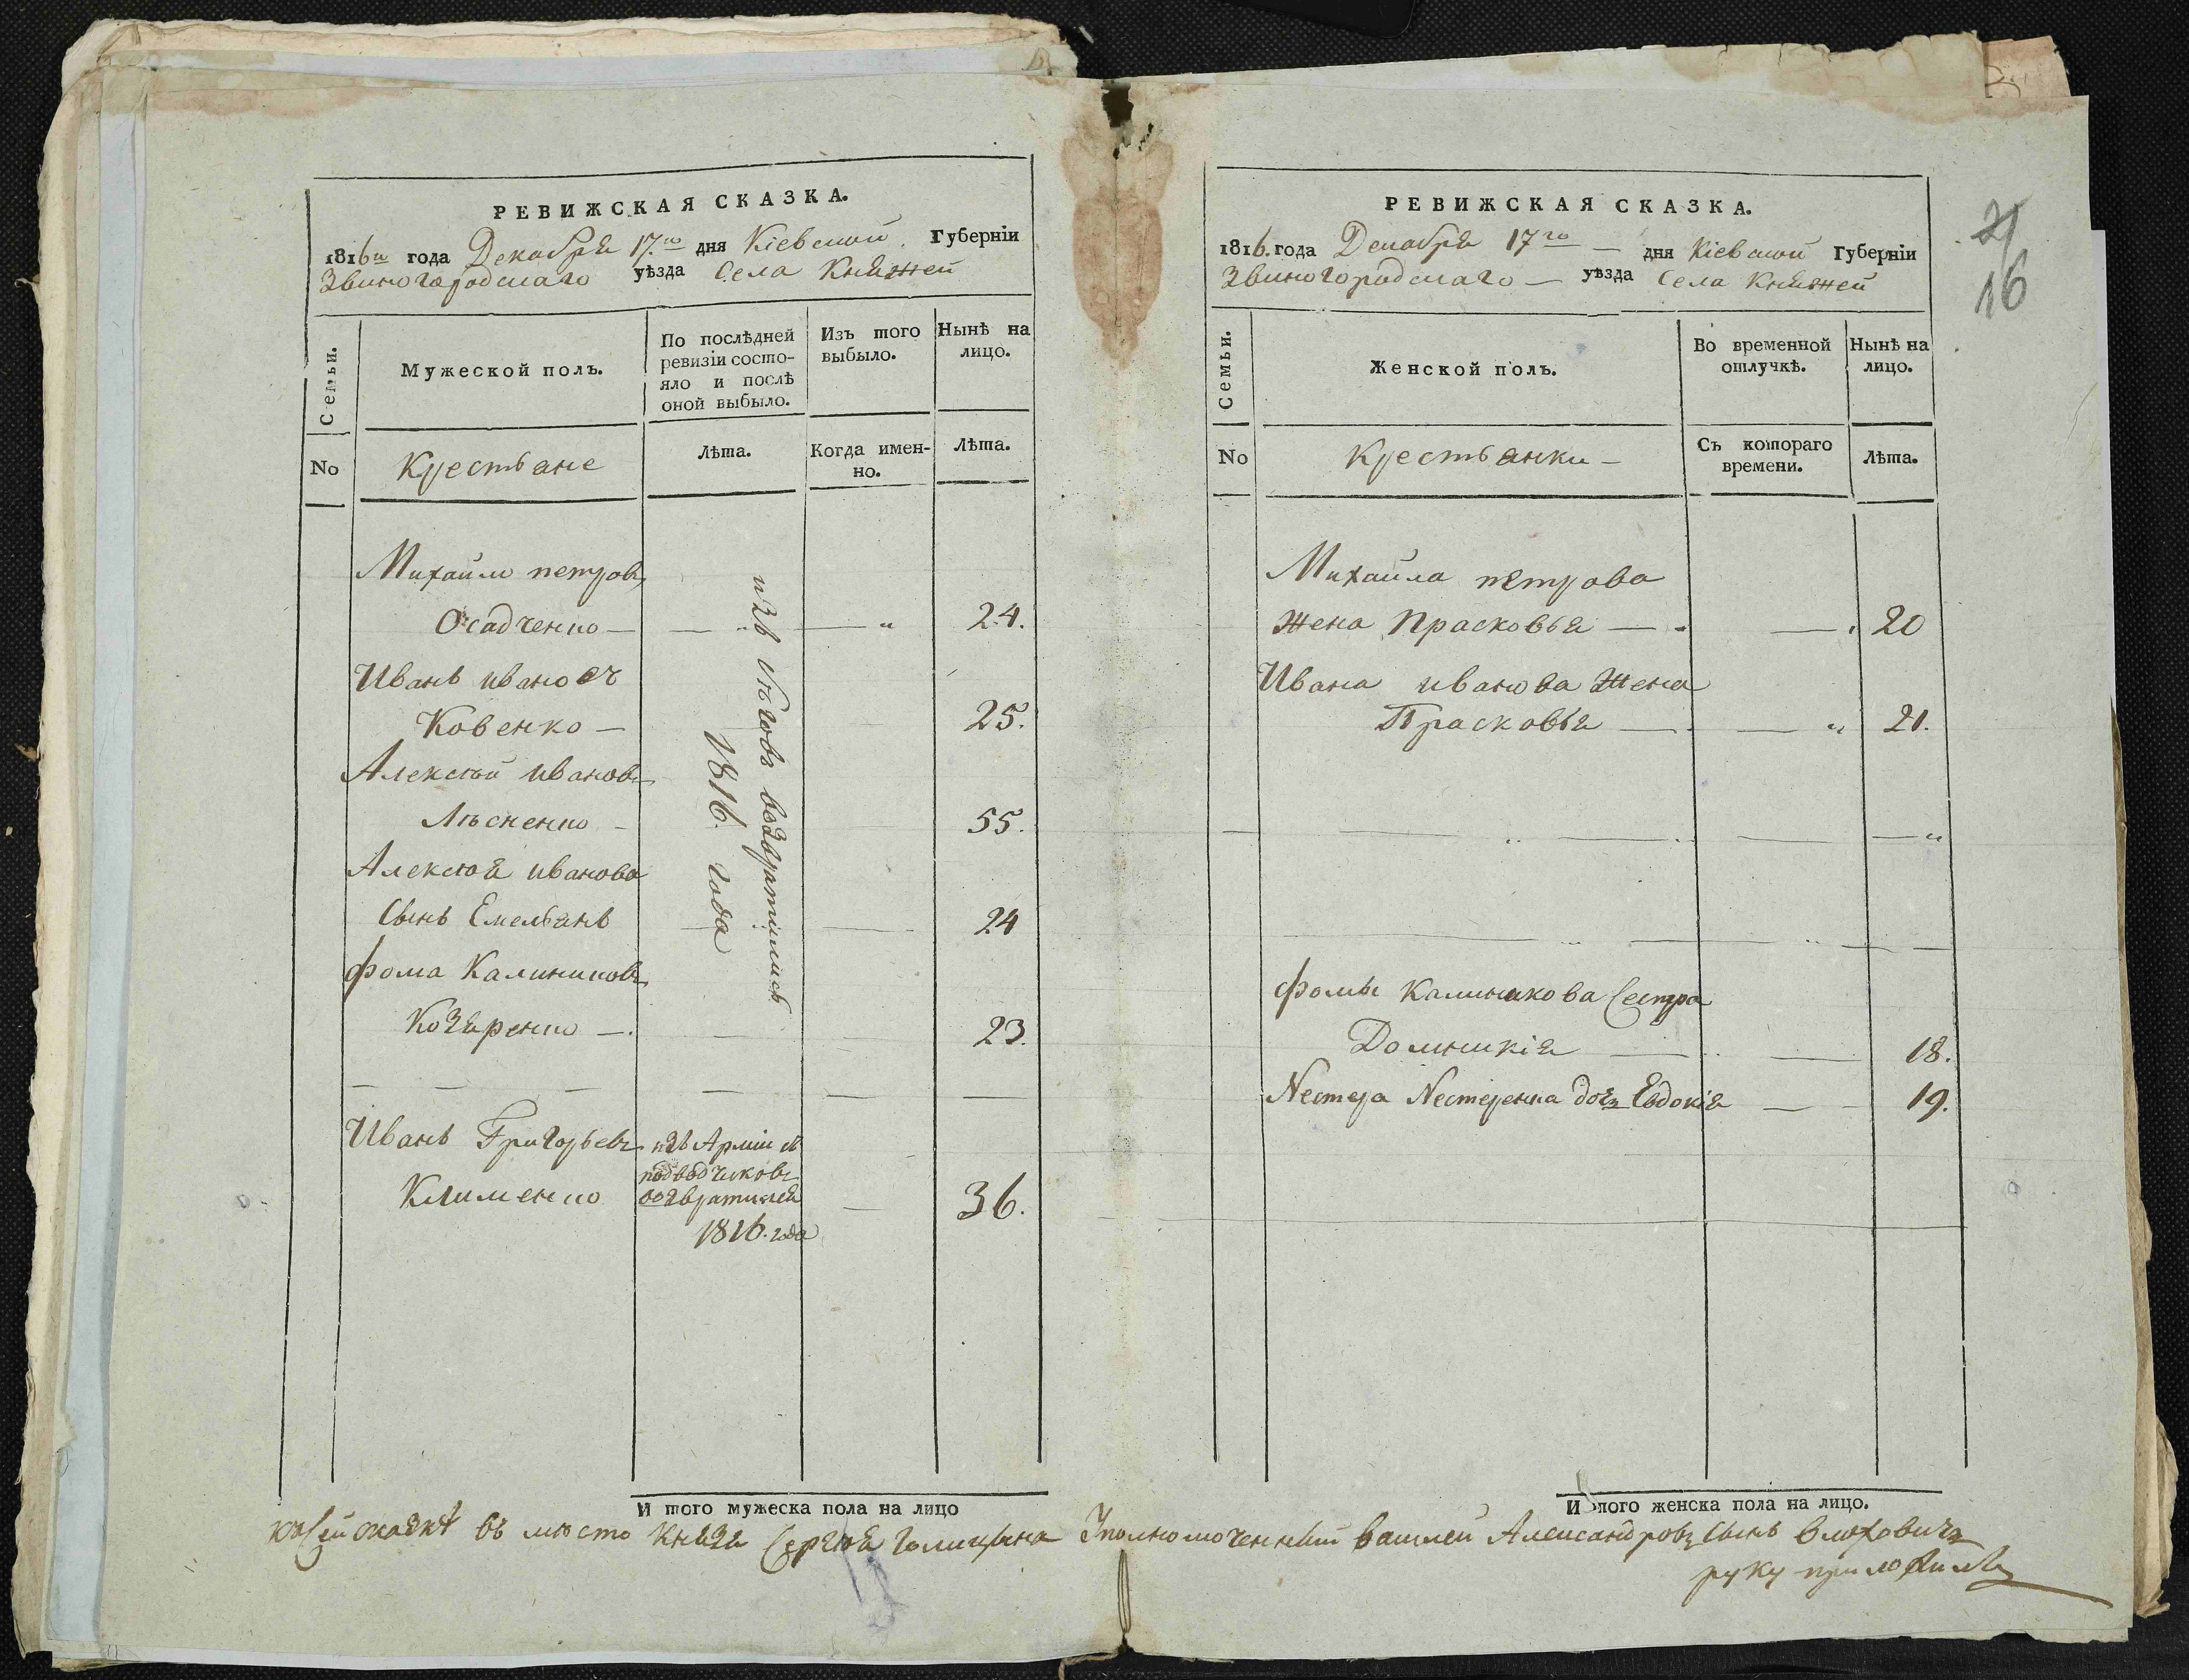 РЕВИЖСКАЯ СКАЗКА.
1816го года Декабря 17.го дня Кіевской Губерніи
Звиногородскаго уѣзда Села Княжей
Семьи.
Мужеской полъ.
По послѣдней ревизіи состояло и послѣ оной выбыло.
Изъ того выбыло.
Нынѣ на лицо.
No
Крестьяне
Лѣта.
Когда именно.
Лѣта.
Михайло петровъ
Осадченко — — „ — „ 24.
Иванъ ивановъ
Ковенко — 25.
Алексѣй ивановъ
Лѣсненко — 55.
Алексѣя иванова
Сынъ Емельянъ 24
Фома Калиниковъ
Козаренко — 23.
изъ бѣговъ возвратились
1816. года
Иванъ Григорьевъ изъ Арміи
подводчиковъ
Клименко возвратился 36.
1816. года
И того мужеска пола на лицо
РЕВИЖСКАЯ СКАЗКА.
1816. года Декабря 17го — дня Кіевской Губерніи
Звиногородскаго — уѣзда Села Княжей
21
16
Семьи.
Женской полъ.
Во временной отлучкѣ.
Нынѣ на лицо.
No
Крестьянки —
Съ котораго времени.
Лѣта.
Михайла петрова
жена Прасковья — — 20
Ивана иванова жена
Прасковья — — „ 21.
Фомы Калиникова Сестра
Домникія — — 18.
Нестера Нестеренка дочь Евдокія — 19.
И того женска пола на лицо.
Къ сей сказкѣ въ мѣсто Князя Сергѣя Голицына Уполномоченный василей Александровъ Сынъ
руку приложилъ